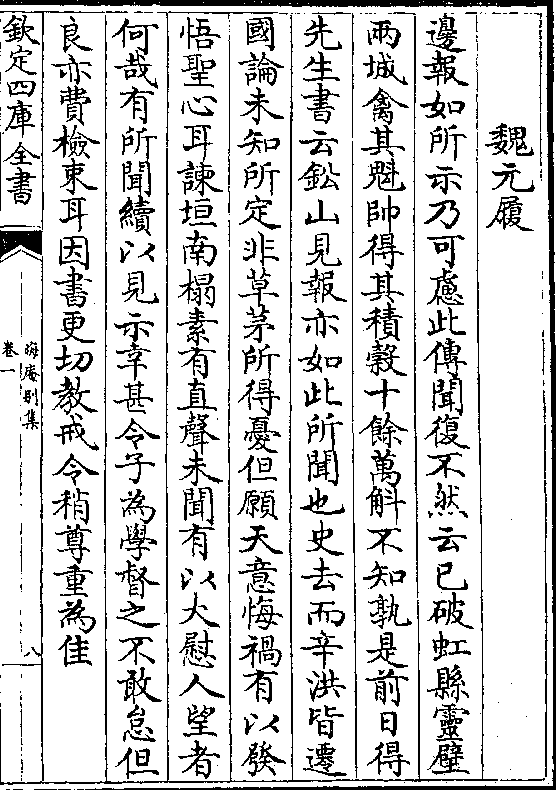 魏元履
邊報如所示乃可慮此傳聞復不然云已破虹縣靈壁
兩城禽其魁帥得其積穀十餘萬斛不知孰是前日得
先生書云鉛山見報亦如此所聞也史去而辛洪皆遷
國論未知所定非草茅所得憂但願天意悔禍有以發
悟聖心耳諫垣南榻素有直聲未聞有以大慰人望者
何哉有所聞續以見示幸甚令子為學督之不敢怠但
良亦費檢束耳因書更切教戒令稍尊重為佳
欽定四庫全書
晦庵別集
卷一
八